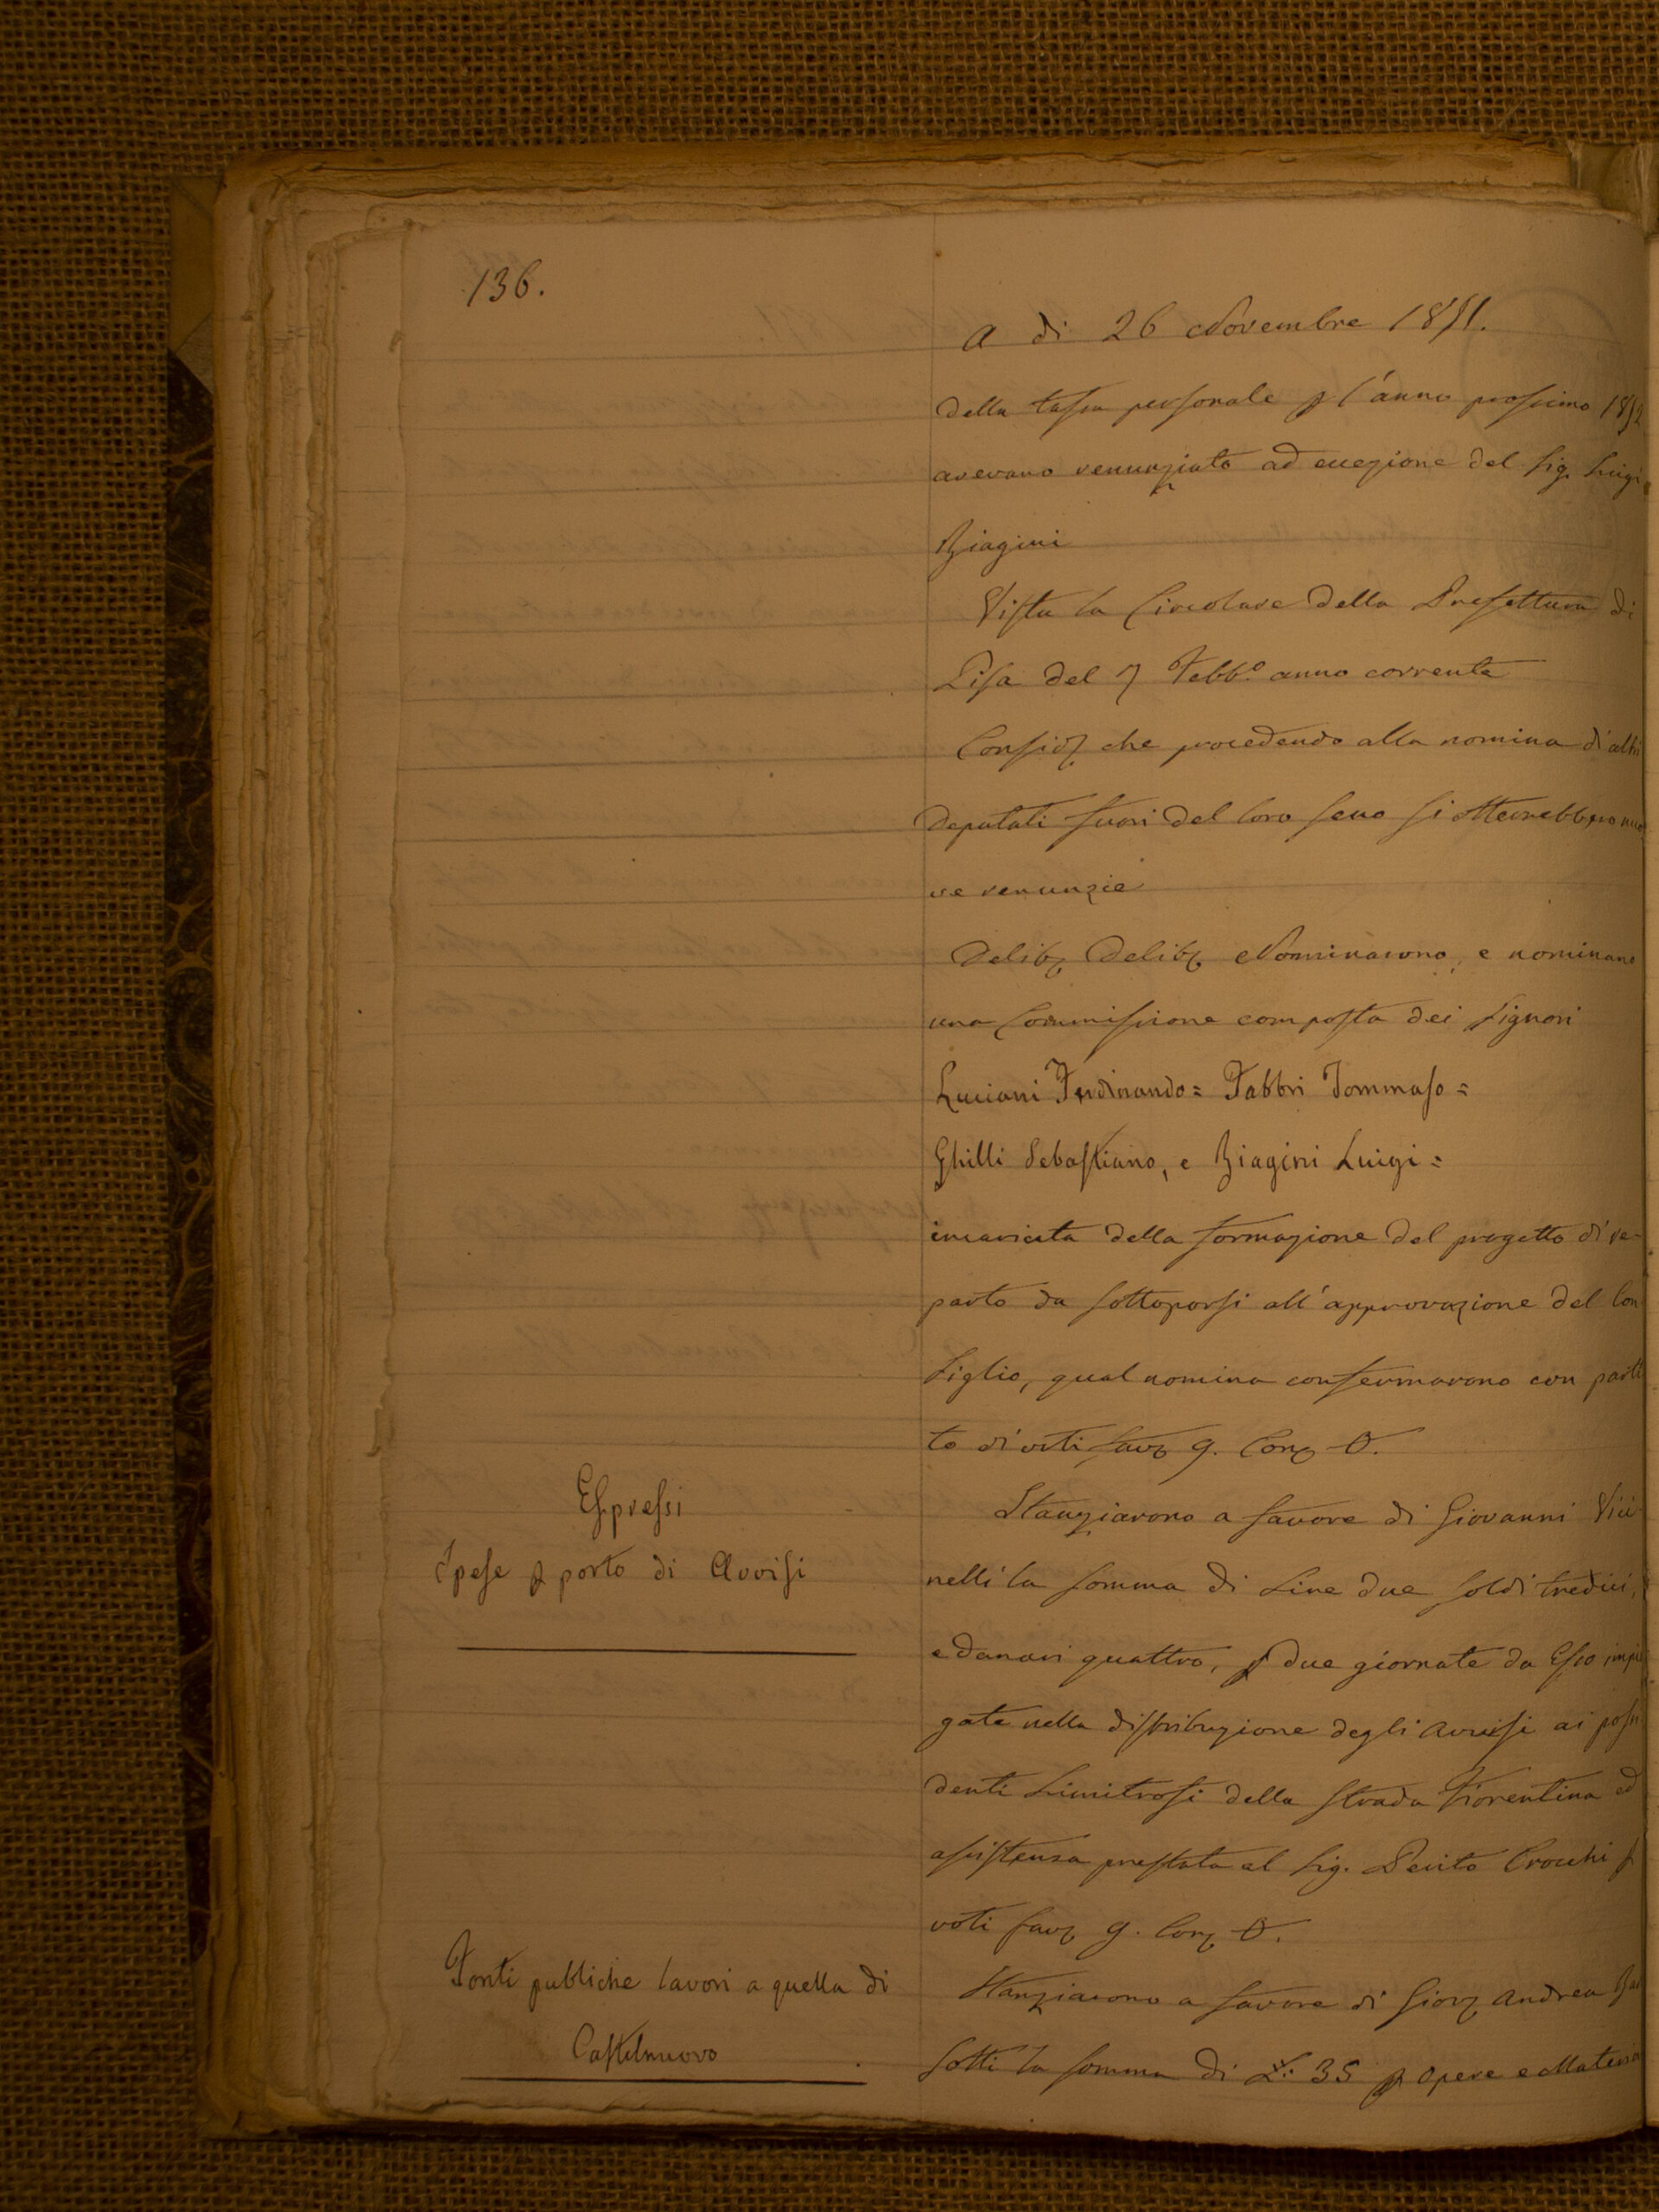 136.
A di 26 Novembre 1851.
della tassa personale p l'anno prossimo 1852
avevano renunziato ad eccezione del Sig. Luigi
Biagini
Vista la Circolare della Prefettura di
Pisa del 7 Febb.o anno corrente
Consid che procedendo alla nomina di altri
Deputati fuori del loro seno si otterrebbero nuo
ve renunzie
Delib Delib Nominarono, e nominano
una Commissione composta dei Signori
Luciani Ferdinando = Fabbri Tommaso =
Ghilli Sebastiano, e Biagini Luigi =
incaricata della formazione del progetto di re-
parto da sottoporsi all'approvazione del Con
siglio, qual nomina confermarono con parti
to di voti fav 9. Con 0.
Espressi
Spese p porto di Avvisi
Stanziarono a favore di Giovanni Vici
nelli la somma di Lire due soldi tredici,
e danari quattro, p due giornate da Esso impie
gate nella distribuzione degli avvisi ai posse
denti Limitrofi della Strada Fiorentina ed
assistenza prestata al Sig. Perito Crocchi p
voti fav 9. Con 0.
Fonti publiche lavori a quella di
Castelnuovo
Stanziarono a favore di Giov Andrea
sotti la somma di L.: 35 p Opere e Materia